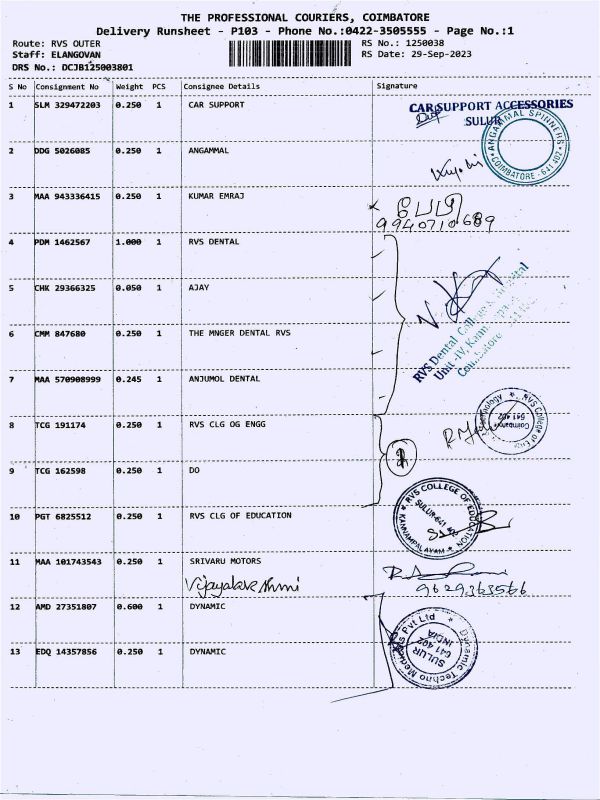 THE PROFESSIONAL COURIERS, COIMBATORE
Delivery Runsheet - P103 - Phone No.:0422-3505555 - Page No.:1
Route: RVS OUTER RS No.: 1250038
Staff: ELANGOVAN RS Date: 29-Sep-2023
DRS No.: DCJB125003801
S No Consignment No Weight PCS Consignee Details Signature
1 SLM 329472203 0.250 1 CAR SUPPORT
CAR SUPPORT ACCESSORIES
SULUR
ANGAMMAL SPINNERS
COIMBATORE - 641 402
2 DDG 5026085 0.250 1 ANGAMMAL
3 MAA 943336415 0.250 1 KUMAR EMRAJ
9940710689
4 PDM 1462567 1.000 1 RVS DENTAL
5 CHK 29366325 0.050 1 AJAY
RVS Dental College & Hospital
Unit-IV,
Coimbatore
6 CMM 847680 0.250 1 THE MNGER DENTAL RVS
7 MAA 570908999 0.245 1 ANJUMOL DENTAL
8 TCG 191174 0.250 1 RVS CLG OG ENGG
RVS College of
Coimbatore
641 402
9 TCG 162598 0.250 1 DO
10 PGT 6825512 0.250 1 RVS CLG OF EDUCATION
RVS COLLEGE OF EDUCATION
SULUR-641 402
KANNAMPALAYAM
11 MAA 101743543 0.250 1 SRIVARU MOTORS
Vijayalakshmi
9629363566
12 AMD 27351807 0.600 1 DYNAMIC
13 EDQ 14357856 0.250 1 DYNAMIC
Dynamic Techno Medicals Pvt Ltd
SULUR
641 402
INDIA